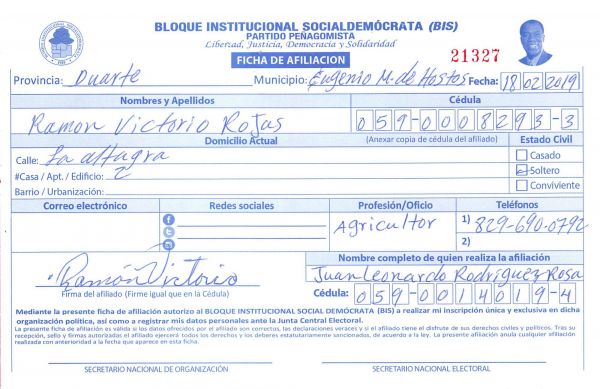 BLOQUE INSTITUCIONAL SOCIALDEMÓCRATA (BIS)
PARTIDO PEÑAGOMISTA
Libertad, Justicia, Democracia y Solidaridad
FICHA DE AFILIACION
21327
Provincia: Duarte Municipio: Eugenio M. de Hostos Fecha: 18 02 2019
Nombres y Apellidos Cédula
Ramon Victorio Rojas 059-0008293-3
Domicilio Actual (Anexar copia de cédula del afiliado) Estado Civil
Calle: La altagra Casado
#Casa / Apt. / Edificio: 2 Soltero
Barrio / Urbanización: Conviviente
Correo electrónico Redes sociales Profesión/Oficio Teléfonos
Agricultor 1) 829-690-0792
2)
Ramón Victorio
Firma del afiliado (Firme igual que en la Cédula)
Nombre completo de quien realiza la afiliación
Juan Leonardo Rodríguez Rosa
Cédula: 059-0014019-4
Mediante la presente ficha de afiliación autorizo al BLOQUE INSTITUCIONAL SOCIAL DEMÓCRATA (BIS) a realizar mi inscripción única y exclusiva en dicha
organización política, así como a registrar mis datos personales ante la Junta Central Electoral.
La presente ficha de afiliación es válida si los datos ofrecidos por el afiliado son correctos, las declaraciones veraces y si el afiliado tiene el disfrute de sus derechos civiles y políticos. Tras su
recepción, sello y firmas autorizadas el afiliado ejercerá todos los derechos y los deberes estatutariamente sancionados, de acuerdo a la ley. La presente afiliación anula cualquier afiliación
realizada con anterioridad a la fecha que aparece en esta ficha.
SECRETARIO NACIONAL DE ORGANIZACIÓN SECRETARIO NACIONAL ELECTORAL